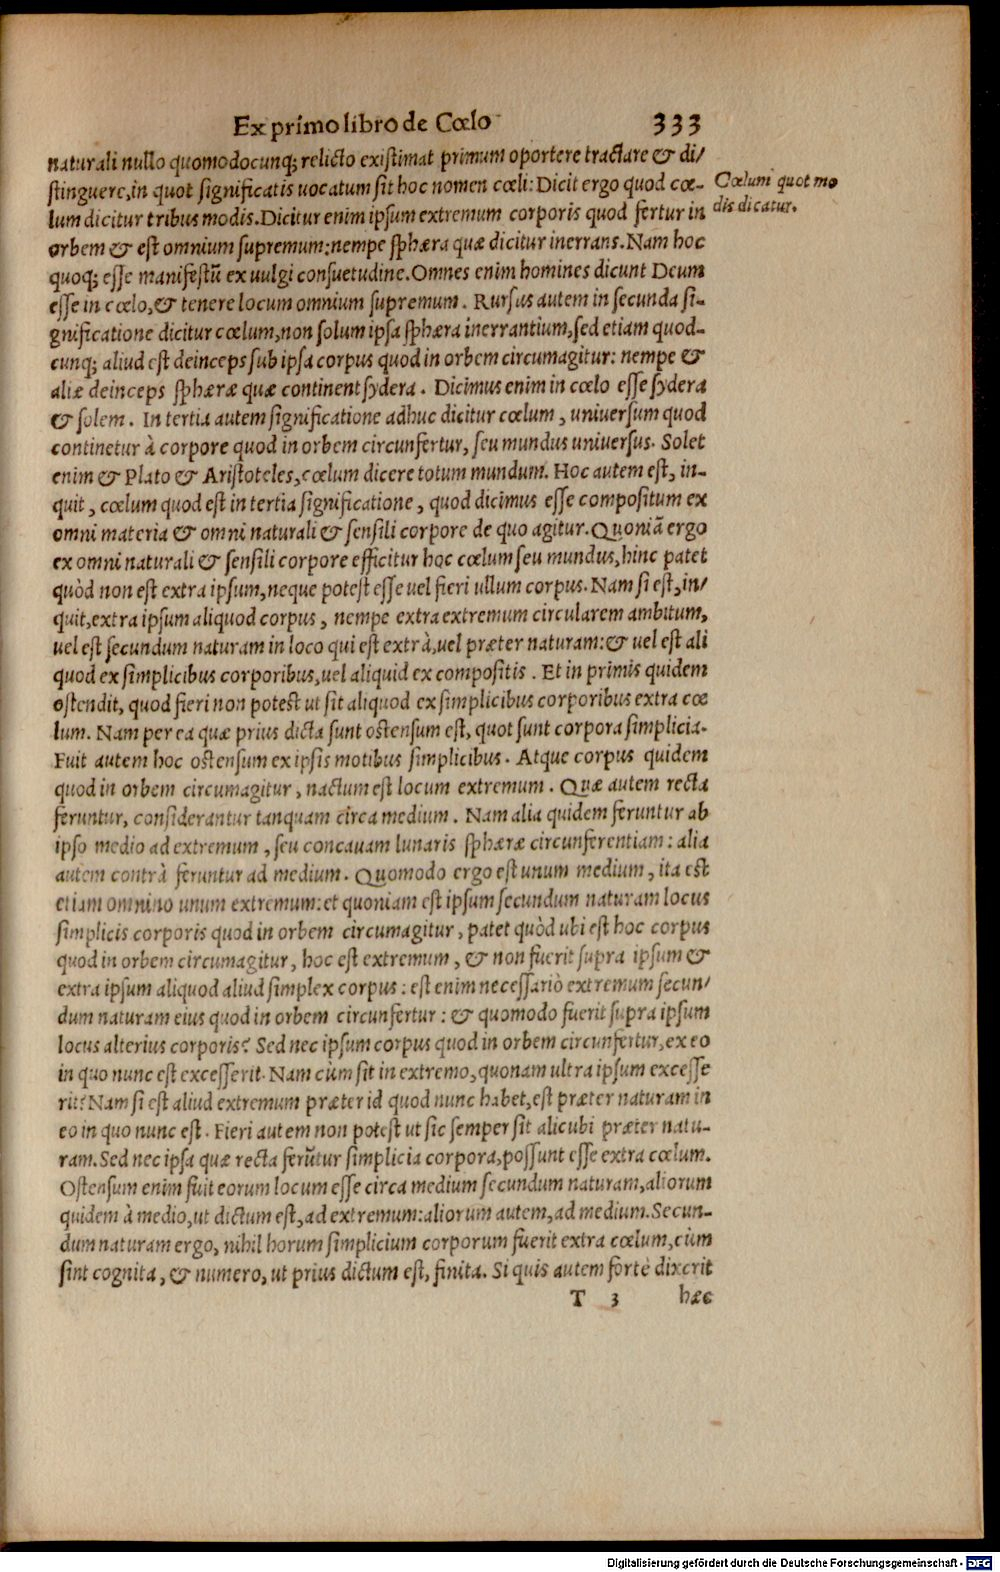 Ex primo libro de Cœlo 333
naturali nullo quomodocunq; relicto existimat primum oportere tractare & di/
stinguere, in quot significatis uocatum sit hoc nomen cœli: Dicit ergo quod cœ-
lum dicitur tribus modis. Dicitur enim ipsum extremum corporis quod fertur in
orbem & est omnium supremum: nempe sphæra quæ dicitur inerrans. Nam hoc
quoq; esse manifestũ ex uulgi consuetudine. Omnes enim homines dicunt Deum
esse in cœlo, & tenere locum omnium supremum. Rursus autem in secunda si-
gnificatione dicitur cœlum, non solum ipsa sphæra inerrantium, sed etiam quod-
cunq; aliud est deinceps sub ipsa corpus quod in orbem circumagitur: nempe &
aliæ deinceps sphæræ quæ continent sydera. Dicimus enim in cœlo esse sydera
& solem. In tertia autem significatione adhuc dicitur cœlum, uniuersum quod
continetur à corpore quod in orbem circunfertur, seu mundus uniuersus. Solet
enim & Plato & Aristoteles, cœlum dicere totum mundum. Hoc autem est, in-
quit, cœlum quod est in tertia significatione, quod dicimus esse compositum ex
omni materia & omni naturali & sensili corpore de quo agitur. Quoniã ergo
ex omni naturali & sensili corpore efficitur hoc cœlum seu mundus, hinc patet
quòd non est extra ipsum, neque potest esse uel fieri ullum corpus. Nam si est, in/
quit, extra ipsum aliquod corpus, nempe extra extremum circularem ambitum,
uel est secundum naturam in loco qui est extrà, uel præter naturam: & uel est ali
quod ex simplicibus corporibus, uel aliquid ex compositis. Et in primis quidem
ostendit, quod fieri non potest ut sit aliquod ex simplicibus corporibus extra cœ
lum. Nam per ea quæ prius dicta sunt ostensum est, quot sunt corpora simplicia.
Fuit autem hoc ostensum ex ipsis motibus simplicibus. Atque corpus quidem
quod in orbem circumagitur, nactum est locum extremum. Quæ autem recta
feruntur, considerantur tanquam circa medium. Nam alia quidem feruntur ab
ipso medio ad extremum, seu concauam lunaris sphæræ circunferentiam: alia
autem contrà feruntur ad medium. Quomodo ergo est unum medium, ita est
etiam omnino unum extremum: et quoniam est ipsum secundum naturam locus
simplicis corporis quod in orbem circumagitur, patet quòd ubi est hoc corpus
quod in orbem circumagitur, hoc est extremum, & non fuerit supra ipsum &
extra ipsum aliquod aliud simplex corpus: est enim necessariò extremum secun/
dum naturam eius quod in orbem circunfertur: & quomodo fuerit supra ipsum
locus alterius corporis? Sed nec ipsum corpus quod in orbem circunfertur, ex eo
in quo nunc est excesserit. Nam cùm sit in extremo, quonam ultra ipsum excesse
rit? Nam si est aliud extremum præter id quod nunc habet, est præter naturam in
eo in quo nunc est. Fieri autem non potest ut sic semper sit alicubi præter natu-
ram. Sed nec ipsa quæ recta ferũtur simplicia corpora, possunt esse extra cœlum.
Ostensum enim fuit eorum locum esse circa medium secundum naturam, aliorum
quidem à medio, ut dictum est, ad extremum: aliorum autem, ad medium. Secun-
dum naturam ergo, nihil horum simplicium corporum fuerit extra cœlum, cùm
sint cognita, & numero, ut prius dictum est, finita. Si quis autem fortè dixerit
T 3 hæc
Cœlum quot mo
dis dicatur.
Digitalisierung gefördert durch die Deutsche Forschungsgemeinschaft - DFG